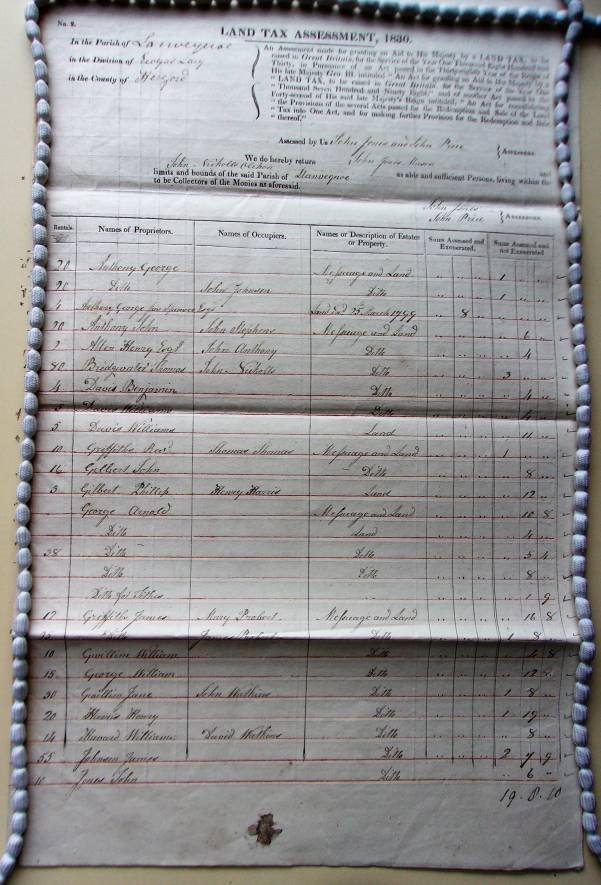 No. 2.
LAND TAX ASSESSMENT, 1830.
In the Parish of Lanveynoe
in the Division of Ewyas Lacy
in the County of Hereford
An Assessment made for granting an Aid to His Majesty by a LAND TAX, to be
raised in Great Britain, for the Service of the Year One Thousand Eight Hundred and
Thirty, in Pursuance of an Act passed in the Thirty-eighth Year of the Reign of
His late Majesty Geo. III. intituled "An Act for granting an Aid to His Majesty by a
"LAND TAX, to be raised in Great Britain, for the Service of the Year One
"Thousand Seven Hundred and Ninety Eight," and of another Act passed in the
Forty-second of His said late Majesty's Reign intituled, "An Act for consolidating
"the Provisions of the several Acts passed for the Redemption and Sale of the Land
"Tax into One Act, and for making further Provision for the Redemption and Sale
"thereof,"
Assessed by Us John Jones and John Price } Assessors.
We do hereby return
John Nicholls John Jones and
limits and bounds of the said Parish of Llanveynoe as able and sufficient Persons, living within the
to be Collectors of the Monies as aforesaid.
John Jones
John Price } Assessors.
Rentals. Names of Proprietors. Names of Occupiers. Names or Description of Estates or Property. Sums Assessed and Exonerated. Sums Assessed and not Exonerated
20 Anthony George Messuage and Land 1
20 Ditto John Johnson Ditto 1
4 Anthony George for Esqr Land 25th March 1799 8
20 Anthony John John Stephens Messuage and Land 6
2 Allen Henry Esqr John Anthony Ditto 4
80 Bridgwater Thomas John Nicholls Ditto 3
4 Davis Benjamin Ditto 4
3 Davis William Ditto 4
5 Davis William Land 11
10 Griffiths Revd Thomas Thomas Messuage and Land 1
16 Gilbert John Ditto 8
3 Gilbert Philip Henry Harris Land 12
George Arnold Messuage and Land 10 8
Ditto Land 4
38 Ditto Ditto 5 4
Ditto Ditto 8
Ditto for Tithes 1 9
17 Griffiths James Mary Probert Messuage and Land 16 8
Ditto James Probert Ditto 1 8
10 Gwilliam William Ditto 4 8
15 George William Ditto 12 8
30 Gwillim Jane John Watkins Ditto 1 8
20 Harris Henry Ditto 1 19
14 Howard William David Watkins Ditto 8
55 Johnson James Ditto 2 7 9
10 Jones John Ditto 6
19.8.10